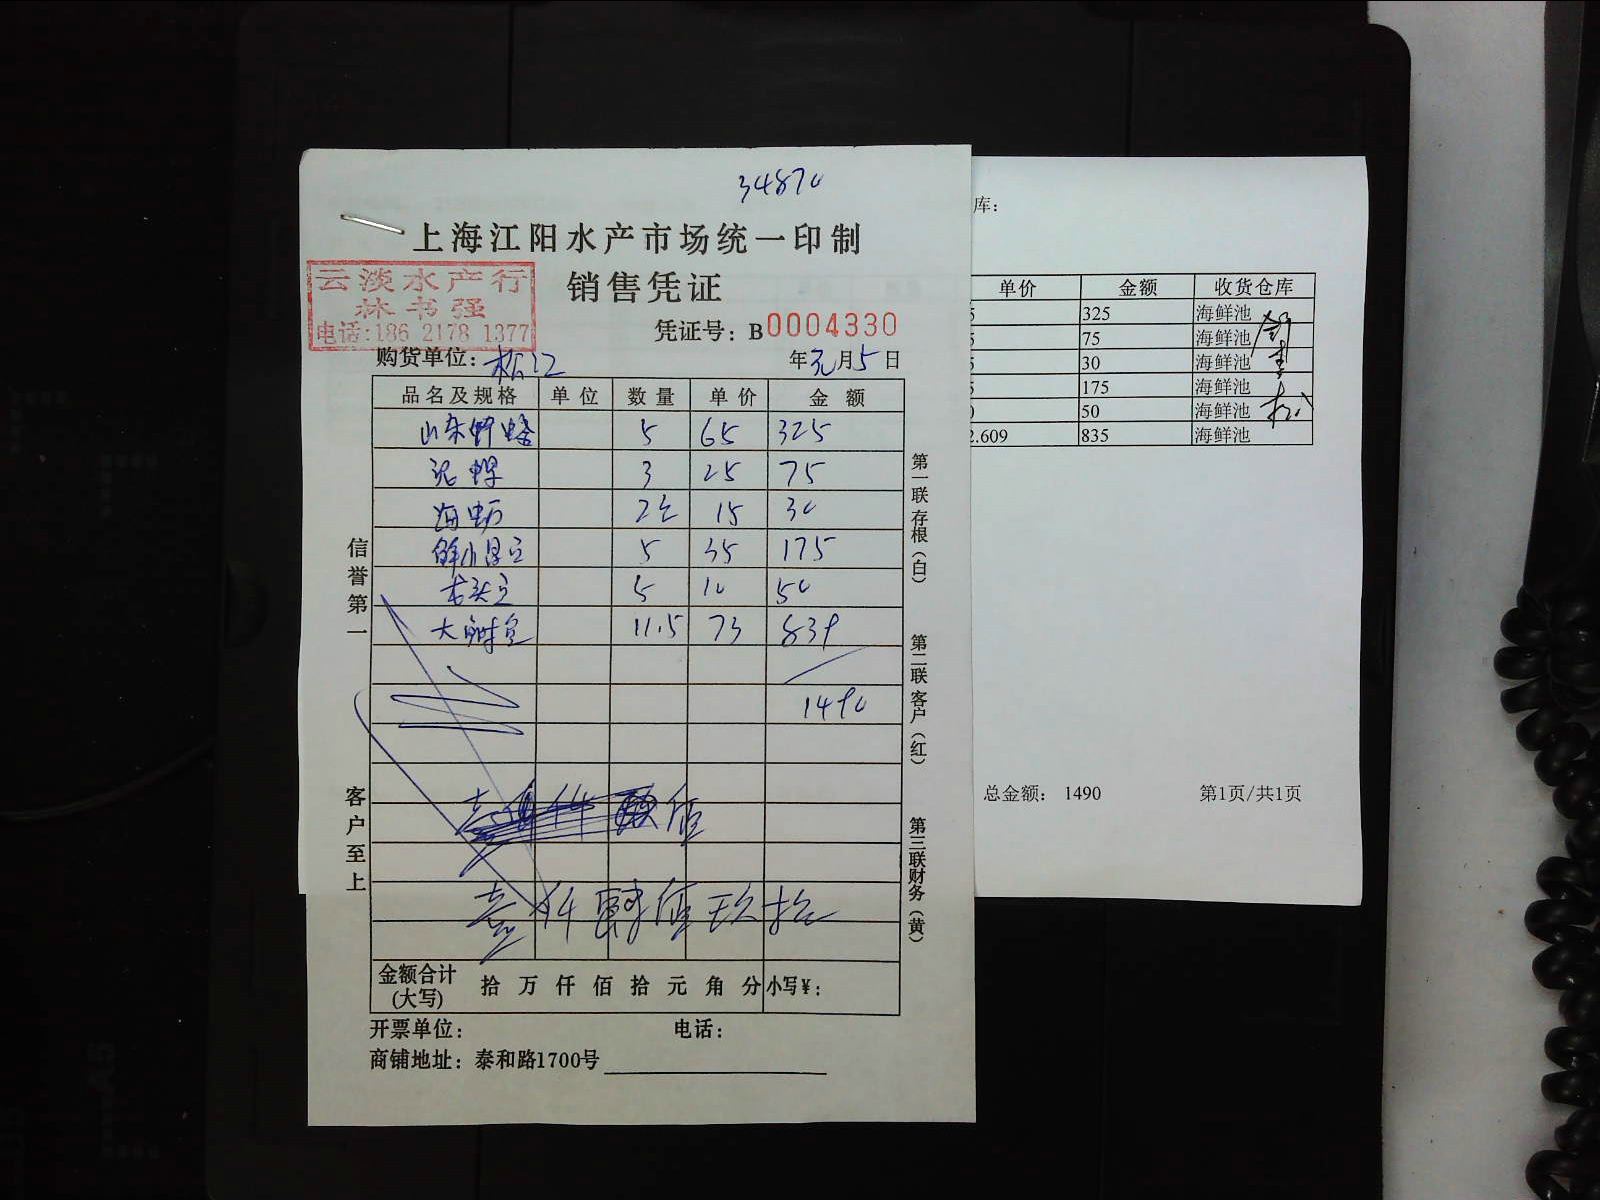 34870
上海江阳水产市场统一印制
销售凭证
云淡水产行
林书强
电话:186 2178 1377
凭证号：B0004330
购货单位：松江
年元月5日
品名及规格 单位 数量 单价 金额
山东野 5 65 325
泥 3 25 75
海蛎 2 15 30
鲜小 5 35 175
5 10 50
大 11.5 73 839
1490
壹仟肆佰玖拾
金额合计(大写) 拾 万 仟 佰 拾 元 角 分 小写¥：
开票单位： 电话：
商铺地址：泰和路1700号
信誉第一
客户至上
第一联存根(白)
第二联客户(红)
第三联财务(黄)
库：
单价 金额 收货仓库
5 325 海鲜池
5 75 海鲜池
5 30 海鲜池
5 175 海鲜池
50 海鲜池
2.609 835 海鲜池
总金额： 1490 第1页/共1页